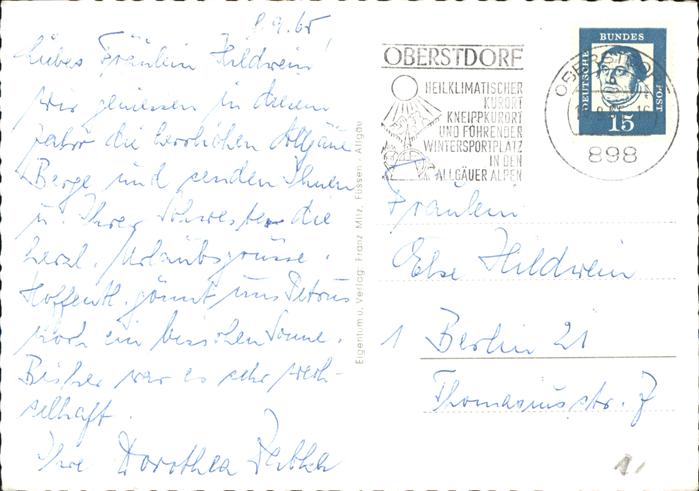 8.9.65
Liebes Fräulein Hildwein!
Wir geniessen in diesem
Jahr die herrlichen Allgäuer
Berge und senden Ihnen
u. Ihrer Schwester die
herzl. Urlaubsgrüsse.
Hoffentl. gönnt uns Petrus
noch ein bisschen Sonne.
Bisher war es sehr wech-
selhaft.
Ihre Dorothea
Eigentum u. Verlag: Franz Milz, Füssen - Allgäu
OBERSTDORF
HEILKLIMATISCHER
KURORT
KNEIPPKURORT
UND FÜHRENDER
WINTERSPORTPLATZ
IN DEN
ALLGÄUER ALPEN
DEUTSCHE BUNDESPOST
15
OBERSTDORF
898
Fräulein
Else Hildwein
1 Berlin 21
Thomasiusstr. 7